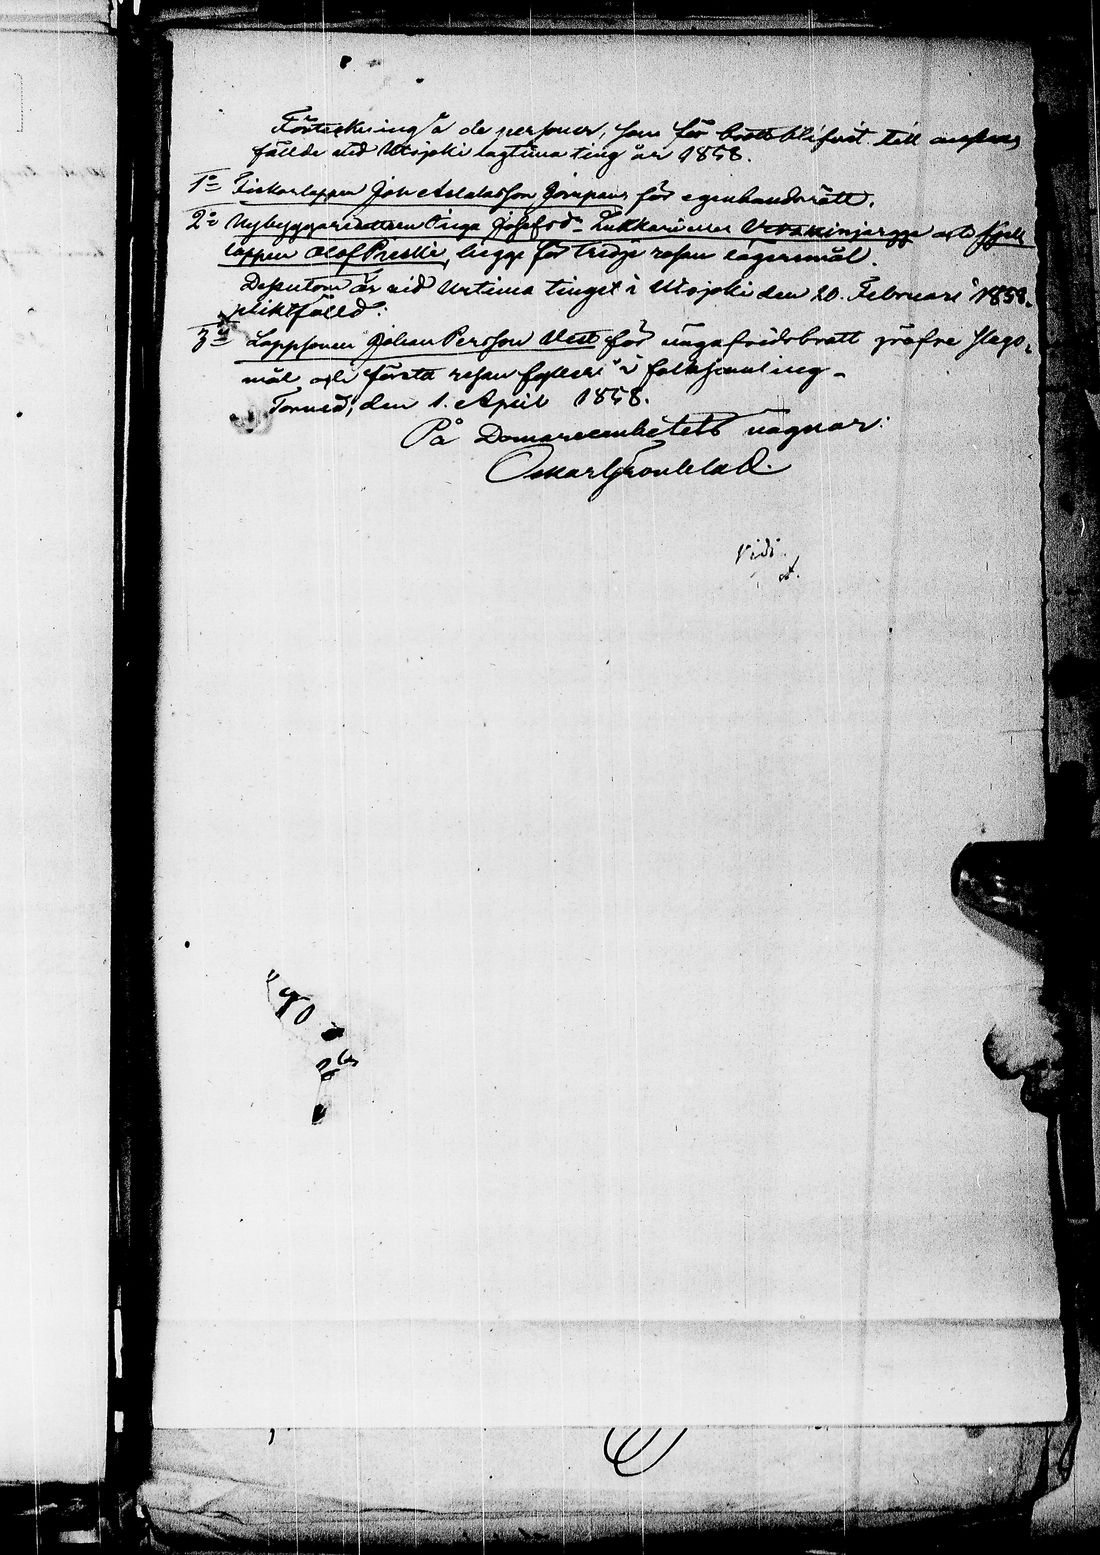 Förteckning å de personer, som för brott blifvit till ansvar
fällde vid Utsjoki lagtima ting år 1858.
1o Fiskarlappen Joh Aslaksson Jompan, för egenhandsrätt.
2o Nybyggarenkan Inga Josefsd. Lukkari och fjell
lappen Olof Preiski, begge för tridje resan lägersmål.
Dessutom är vid Urtima tinget i Utsjoki den 20. Februari 1858.
pliktfälld:
3o Lappsonen Johan Persson West för vägafridsbrott gröfre slags-
mål och första resan fylleri i folksamling.
Torneå, den 1. April 1858.
På Domareembetets vägnar:
Oskar Grönblad.
Vidi